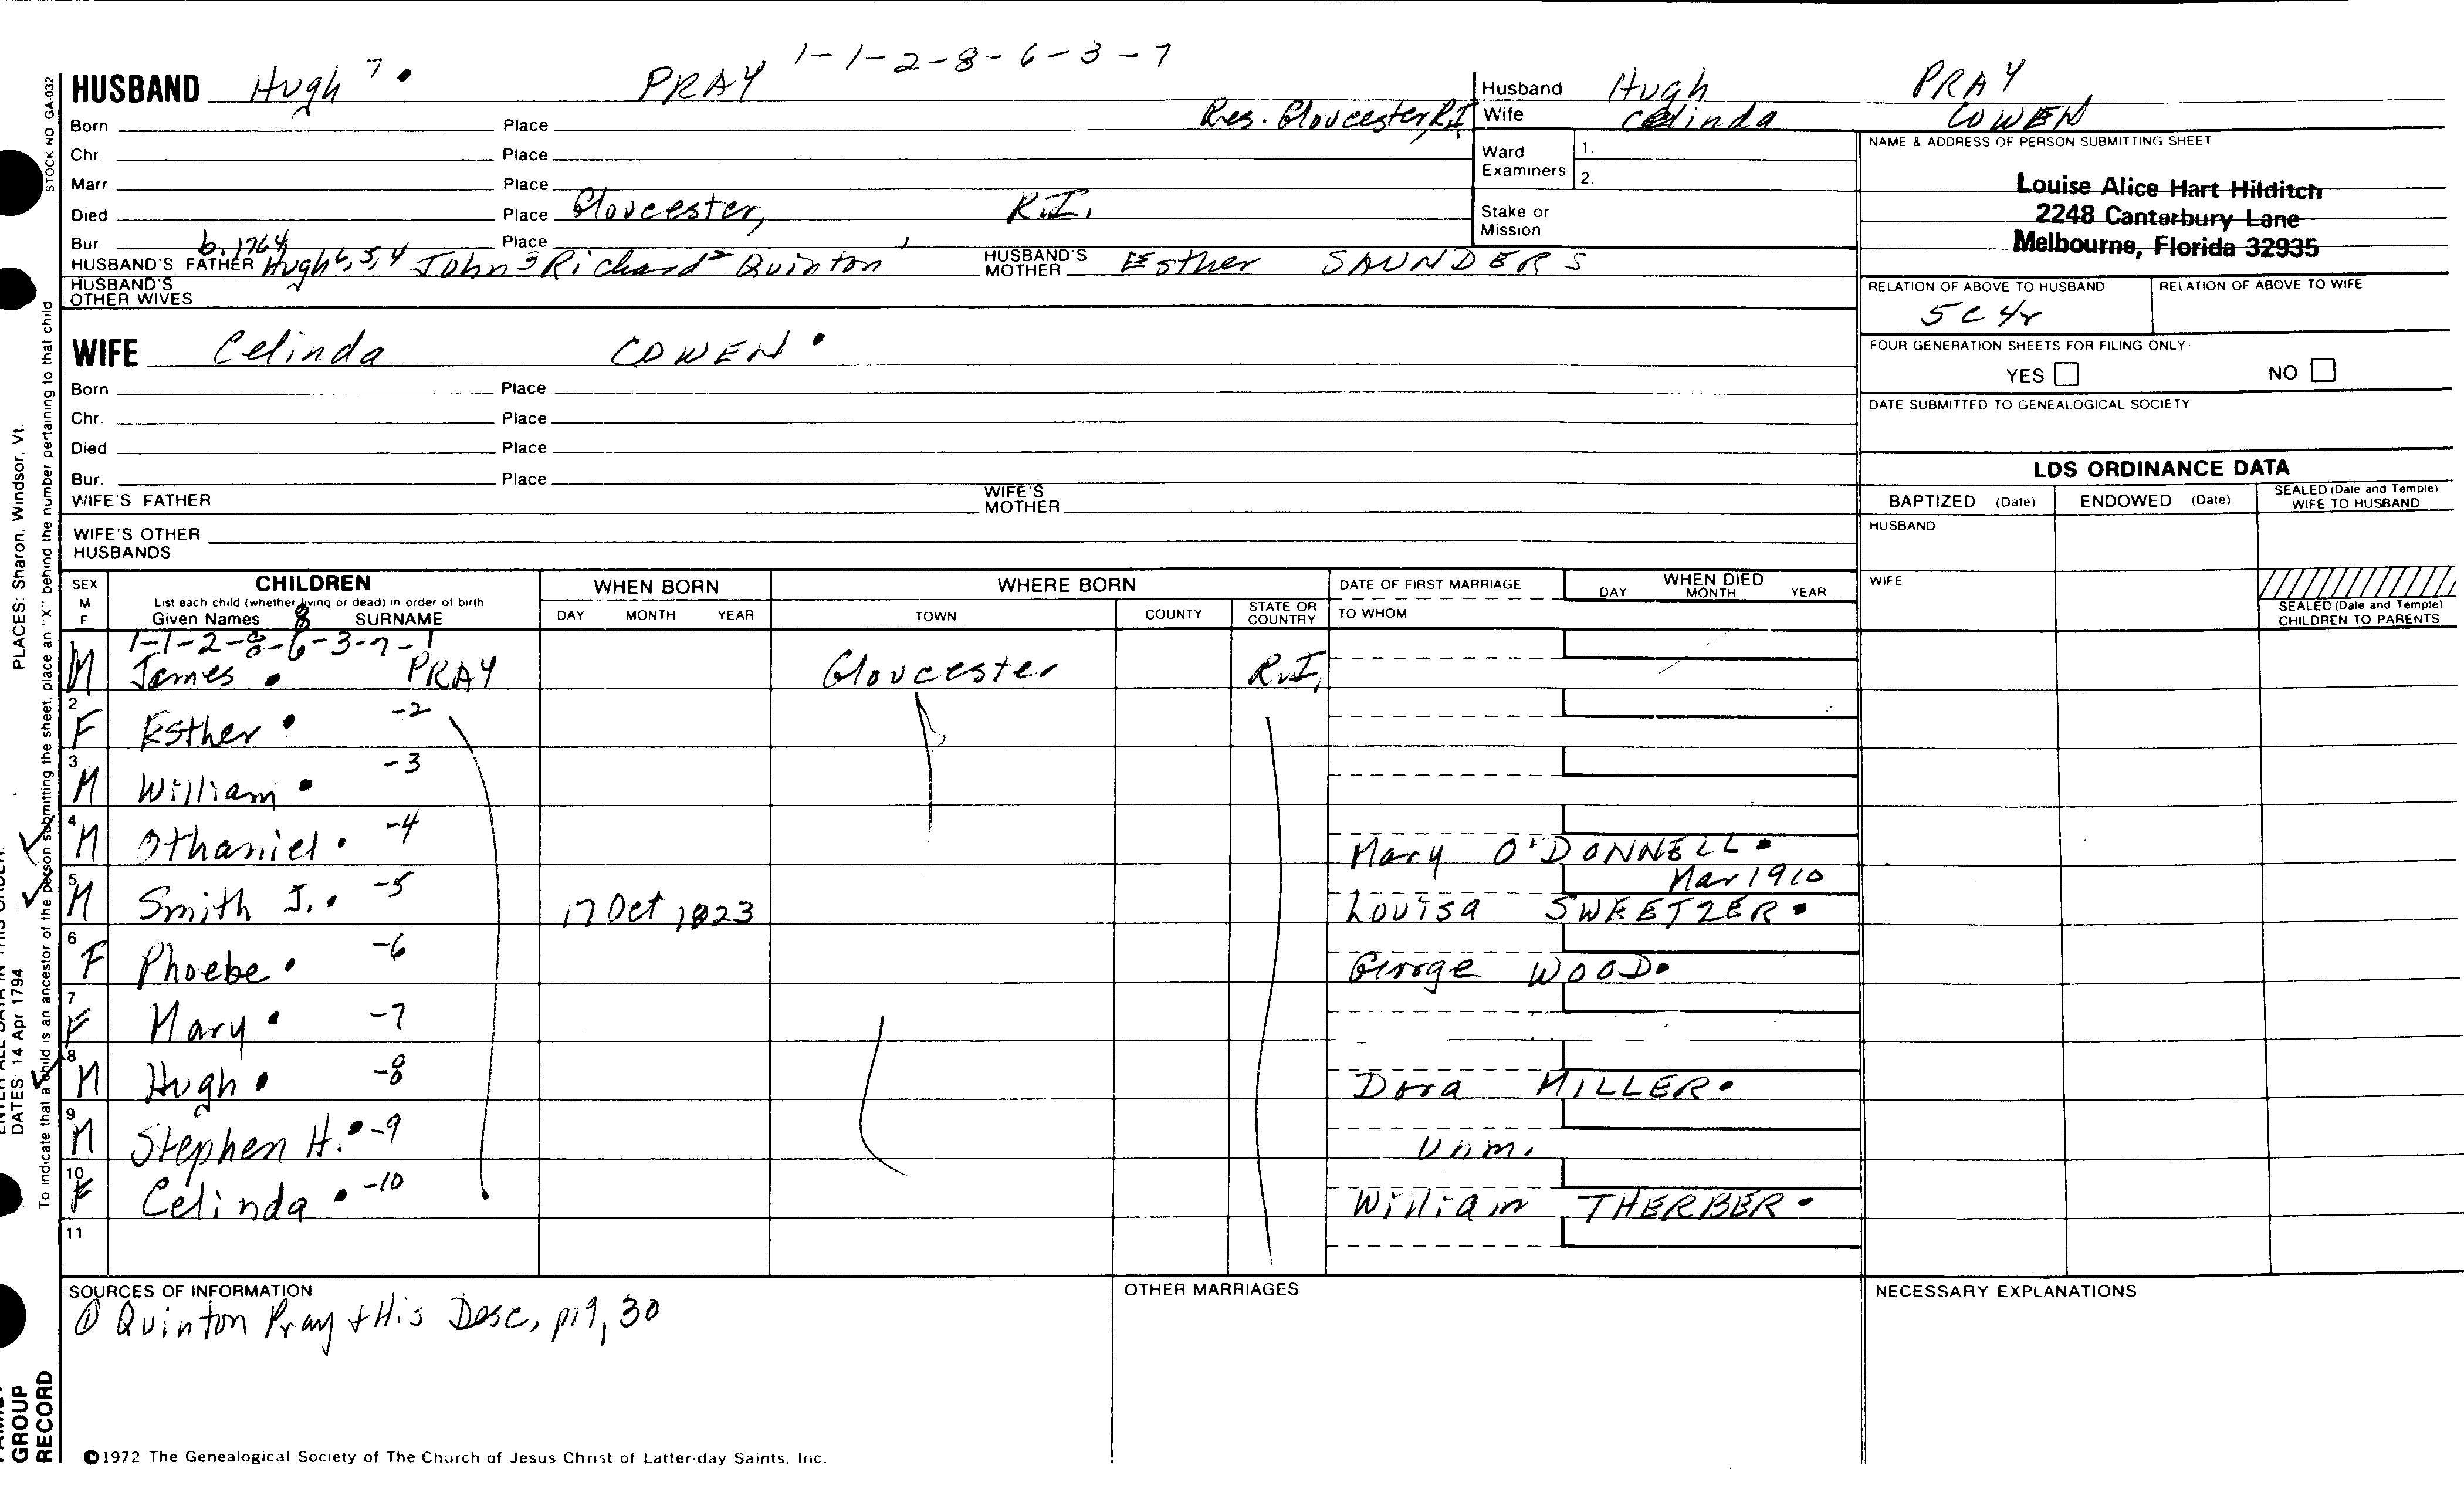 1-1-2-8-6-3-7
HUSBAND Hugh 7 . PRAY
Res. Gloucester, R.I.
Born Place
Chr. Place
Marr. Place
Died Place Gloucester, R.I.
Bur. Place
b. 1764
HUSBAND'S FATHER Hugh 6, 5, 4 John 3 Richard 2 Quinton 1 HUSBAND'S MOTHER Esther SAUNDERS
HUSBAND'S OTHER WIVES
Husband Hugh PRAY
Wife Celinda COWEN
Ward Examiners 1.
2.
Stake or Mission
NAME & ADDRESS OF PERSON SUBMITTING SHEET
Louise Alice Hart Hilditch
2248 Canterbury Lane
Melbourne, Florida 32935
RELATION OF ABOVE TO HUSBAND RELATION OF ABOVE TO WIFE
5C 4r
FOUR GENERATION SHEETS FOR FILING ONLY
YES NO
DATE SUBMITTED TO GENEALOGICAL SOCIETY
WIFE Celinda COWEN .
Born Place
Chr. Place
Died Place
Bur. Place
WIFE'S FATHER WIFE'S MOTHER
WIFE'S OTHER HUSBANDS
LDS ORDINANCE DATA
BAPTIZED (Date) ENDOWED (Date) SEALED (Date and Temple) WIFE TO HUSBAND
HUSBAND
WIFE
SEALED (Date and Temple) CHILDREN TO PARENTS
SEX M F CHILDREN WHEN BORN WHERE BORN DATE OF FIRST MARRIAGE WHEN DIED
List each child (whether living or dead) in order of birth
Given Names SURNAME DAY MONTH YEAR TOWN COUNTY STATE OR COUNTRY TO WHOM DAY MONTH YEAR
1-1-2-8-6-3-7-1
1 M James . PRAY Gloucester R.I.
2 F Esther . -2
3 M William . -3
4 M Othaniel . -4 Mary O'DONNELL .
Mar 1910
5 M Smith J. . -5 17 Oct 1823 Louisa SWEETZER .
6 F Phoebe . -6 George WOOD .
7 F Mary . -7
8 M Hugh . -8 Dora MILLER .
9 M Stephen H. . -9 Unm.
10 F Celinda . -10 William THERBER .
11
SOURCES OF INFORMATION
① Quinton Pray + His Desc, p19, 30
OTHER MARRIAGES
NECESSARY EXPLANATIONS
©1972 The Genealogical Society of The Church of Jesus Christ of Latter-day Saints, Inc.
STOCK NO GA-032
To indicate that a child is an ancestor of the person submitting the sheet, place an "X" behind the number pertaining to that child
PLACES: Sharon, Windsor, Vt.
DATES: 14 Apr 1794
GROUP
RECORD